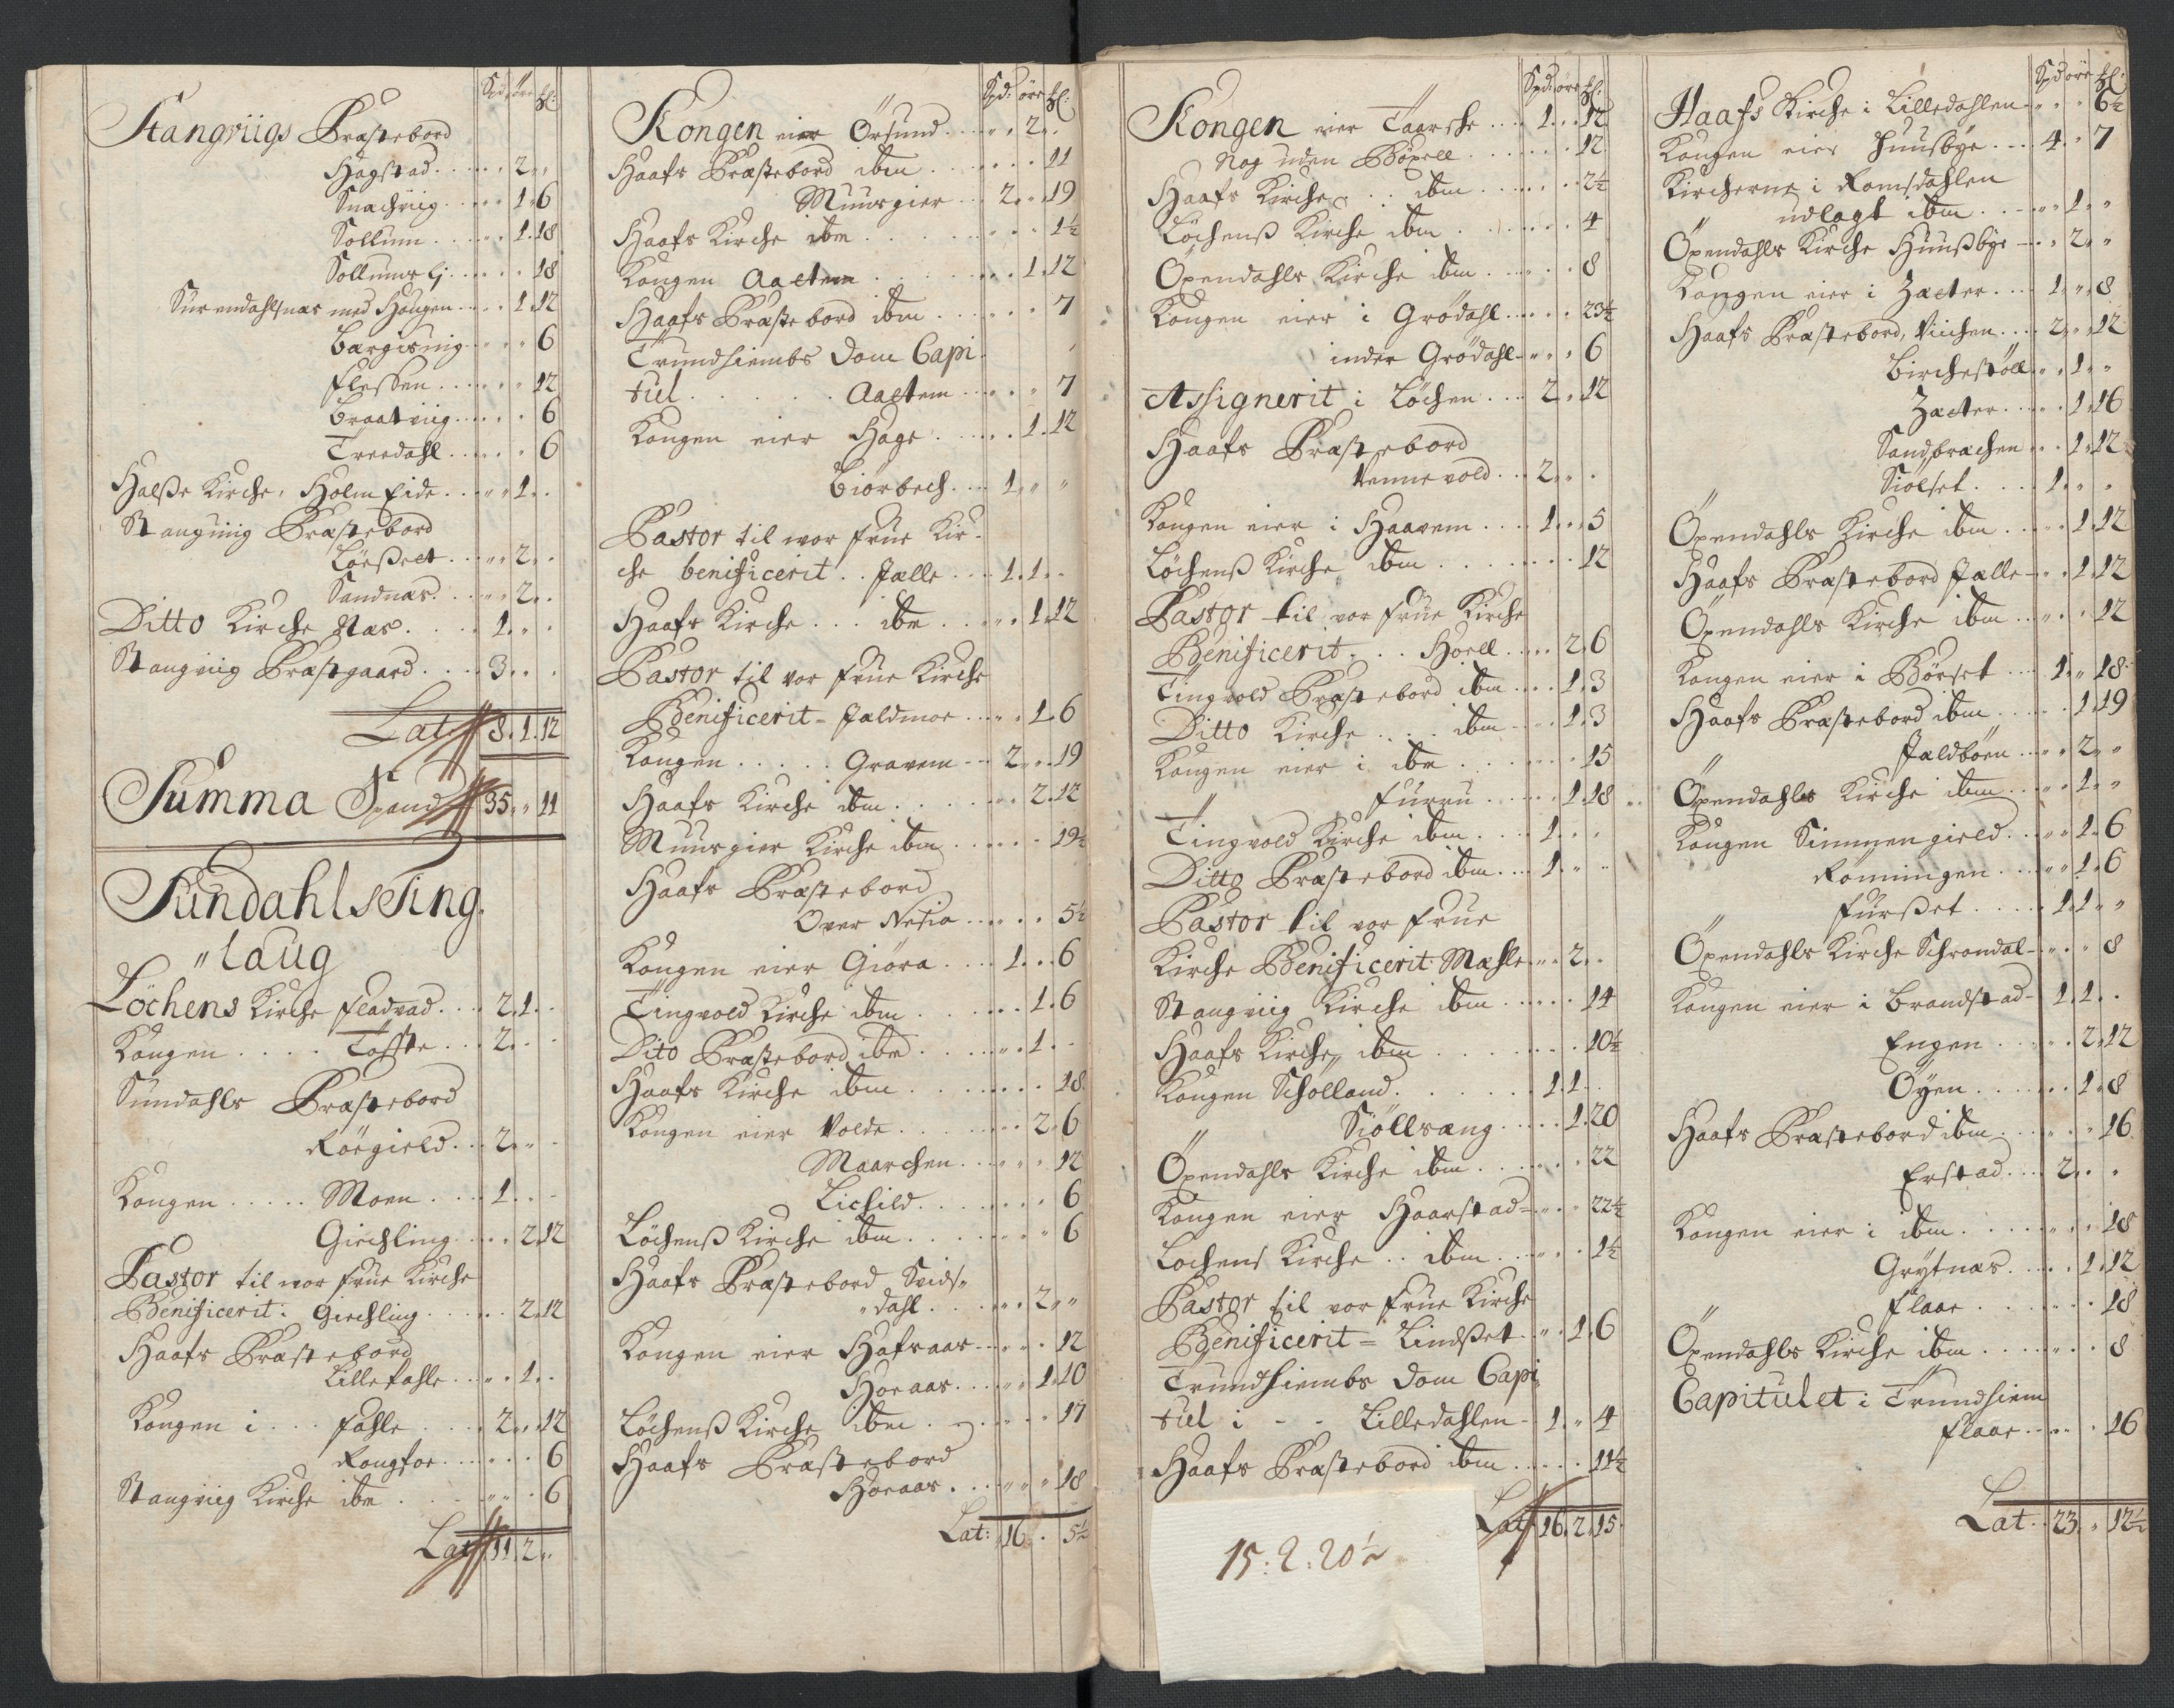 Spd: öre ℔l:
Stangviigs Præstebord
Hagstad . . . . . 2 „ „
Snachviig . . . . . 1 „ 6
Sollium . . . . . 1. 18
Solliums Ej . . . . . 18
Surendahlsnæs med Haugen . . . . 1. 12
Bærgisviig . . . . 6
Flessen . . . . „ 12
Braatviig . . . . . 6
Treedahl . . . . . 6
Halsse Kirche, Holm Eide . . . „ „ 1. .
Stangviig Præstebord
Lörsset . . . „ „ 2 . .
Sandnæs . . . „ „ 2 . .
Ditto Kirche Næs . . . . 1. „ .
Stangviig Præstgaard . . . . 3. . .
Lat 8. 1. 12
Summa Spand 35 „ „ 11
Sundahls Ting
„laug
Löchens Kirche Fladvad . . . 2. 1. .
Kongen . . . . Tofte . . . 2. . .
Sundahls Præstebord
Röegield . . . 2. „ .
Kongen . . . . . Moen . . . . 1. . .
Giechling . . . . . 2. 12
Pastor til vor Frue Kirche
Benificerit: Giechling . . . . . . 2. 12
Haafs Præstebord
Lille Fahle . . . „ . 1. .
Kongen i . . . Fahle . . . . 2. „ 12
Rongfoe . . . . . . 6
Stangviig Kirche ibm . . . . „ „ . 6
Lat 11. 2 „
Spd: öre ℔l:
Kongen eier Örsund . . . . „ . 2 . .
Haafs Præstebord ibm . . . . . . . 11
Muusgier . . . 2. . . 19
Haafs Kirche ibm . . . . . . . . . 1½
Kongen Aaltem . . . . . . . . 1. 12
Haafs Præstebord ibm . . . . . . . 7
Trundhiembs Dom Capi
tul . . . . . . Aaltem . . . . „ 7
Kongen eier Hage . . . . . . 1. 12
Biörbech . . . 1. „ „
Pastor til wor Frue Kir-
che benificerit . . Jælle . . . 1. 1. .
Haafs Kirche . . . ibm . . . „ . 1. 12
Pastor til vor Frue Kirche
Benificerit - Fældmoe . . . „ . 1. 6
Kongen . . . . . Gravem - - 2. „ . 19
Haafs Kirche ibm . . . . . . . 2. 12
Muusgier Kirche ibm . . . . . . 19½
Haafs Præstebord
Over Nesia . . . . . . 5½
Kongen eier Giöra . . . . 1. . . 6
Tingvold Kirche ibm . . . . . . 1. 6
Dito Præstebord ibm . . . . „ . 1. .
Haafs Kirche ibm . . . . . . . . 18
Kongen eier Volde . . . . . . . 2. 6
Maarchen . . . . . „ 12
Lichild . . . . . . . 6
Löchenss Kirche ibm . . . . . . . „ 6
Haafs Præstebord Svids„
„dahl . . . . „ . 2 „ „
Kongen eier Hafsaas . . . . . 12
Hoeaas . . . . „ „ 1. 10
Löchenss Kirche ibm . . . . . . 17
Haafs Præstebord
Hoeaas . . . „ „ „ 18
Lat: 16. . 5½
Spd: öre ℔l:
Kongen eier Taarshe . . . 1. . . 12
Nog uden Böxell . . . . . . . 12
Haafs Kirche . . . ibm . . . . . . 2½
Löchenss Kirche ibm . . . . . . . 4
Öxendahls Kirche ibm . . . . . . 8
Kongen eier i Grödahl . . . . . 23½
inder Grödahl - „ „ . 6
Assignerit i Löchen . . . 2. „ 12
Haafs Præstebord
Vennevold . . . 2. „ .
Kongen eier i Haavem . . . . 1. . . 5
Löchenss Kirche ibm . . . . . . . . 12
Pastor til vor Frue Kirche
Benificerit . . . Hoell . . . . . 2. 6
Tingvold Præstebord ibm . . . . 1. 3
Ditto Kirche . . . . ibm . . . . 1. 3
Kongen eier i ibm . . . . . . . 15
„ Furru . . . . . . 1. 18
Tingvold Kirche ibm . . . . 1. . .
Ditto Præstebord ibm . . . 1. „ .
Pastor til vor Frue
Kirche Benificerit Mæhle . „ . 2. .
Stangviig Kirche ibm . . . . . . 14
Haafs Kirche ibm . . . . . . . . 10½
Kongen Schölland . . . . . . . 1. 1. .
„ Siöllsæng . . . . . 1. 20
Öxendahls Kirche ibm . . . . . . . 22
Kongen eier Haarstad . . „ . . 22½
Lochens Kirche . . ibm . . . . . . 1½
Pastor til vor Frue Kirche
Benificerit = Lindsset . „ . 1. 6
Trundhiembs Dom Capi
tul i - - Lilledahlen - 1. „ 4
Haafs Præstebord ibm . . . . . 11½
Lat 16. 2. 15
15: 2: 20½
Spd öre ℔l:
Haafs Kirche i Lilledahlen . . . . 6½
Kongen eier Huusbye . . . 4. . 7
Kircherne i Romsdahlen
„ udlagt ibm . . . „ „ 1. „
Öxendahls Kirche Huussbye . . . 2. „
Kongen eier i Zæter . . . 1. „ „ 8
Haafs Præstebord, Viichen . . . 2. „ 12
Birchestöll . . . 1. „
Zæter . . . . . 1. 16
Sandbrachen . . . 1. 12
Siölset . . . . 1. „ .
Öxendahls Kirche ibm . . . . . 1. 12
Haafs Præstebord Jælle . . . 1. 12
Öxendahls Kirche ibm . . . „ . 12
Kongen eier i Börset . . . 1. „ 18
Haafs Præstebord ibm . . . . . 1. 19
„ Jældböen . . . . 2. „
Öxendahls Kirche ibm . . . . . 1. „
Kongen Simmengield . . . . „ 1. 6
Rönningen . . . . „ 1. 6
„ Fursset . . . . . 1. 1. „
Öxendahls Kirche Schrondal . „ . . 8
Kongen eier i Brandstad . 1. 1. .
Engen . . . . . . 2. 12
Öyen . . . . . . 1. 8
Haafs Præstebord ibm . . . . . „ 16
Erstad . . . 2. . .
Kongen eier i ibm . . . . . „ „ . 18
Grytnæs . . . . . 1. 12
„ Flaae . . . . . . . 18
Öxendahls Kirche ibm . . . . . „ . 8
Capitulet i Trundhiem
Flaae . . . . . 16
Lat. 23. „ 12½